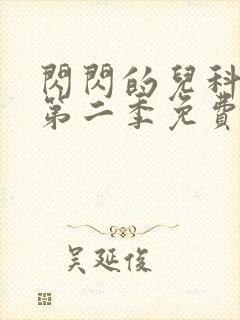 閃閃的兒科
第二季免費
吳延俊